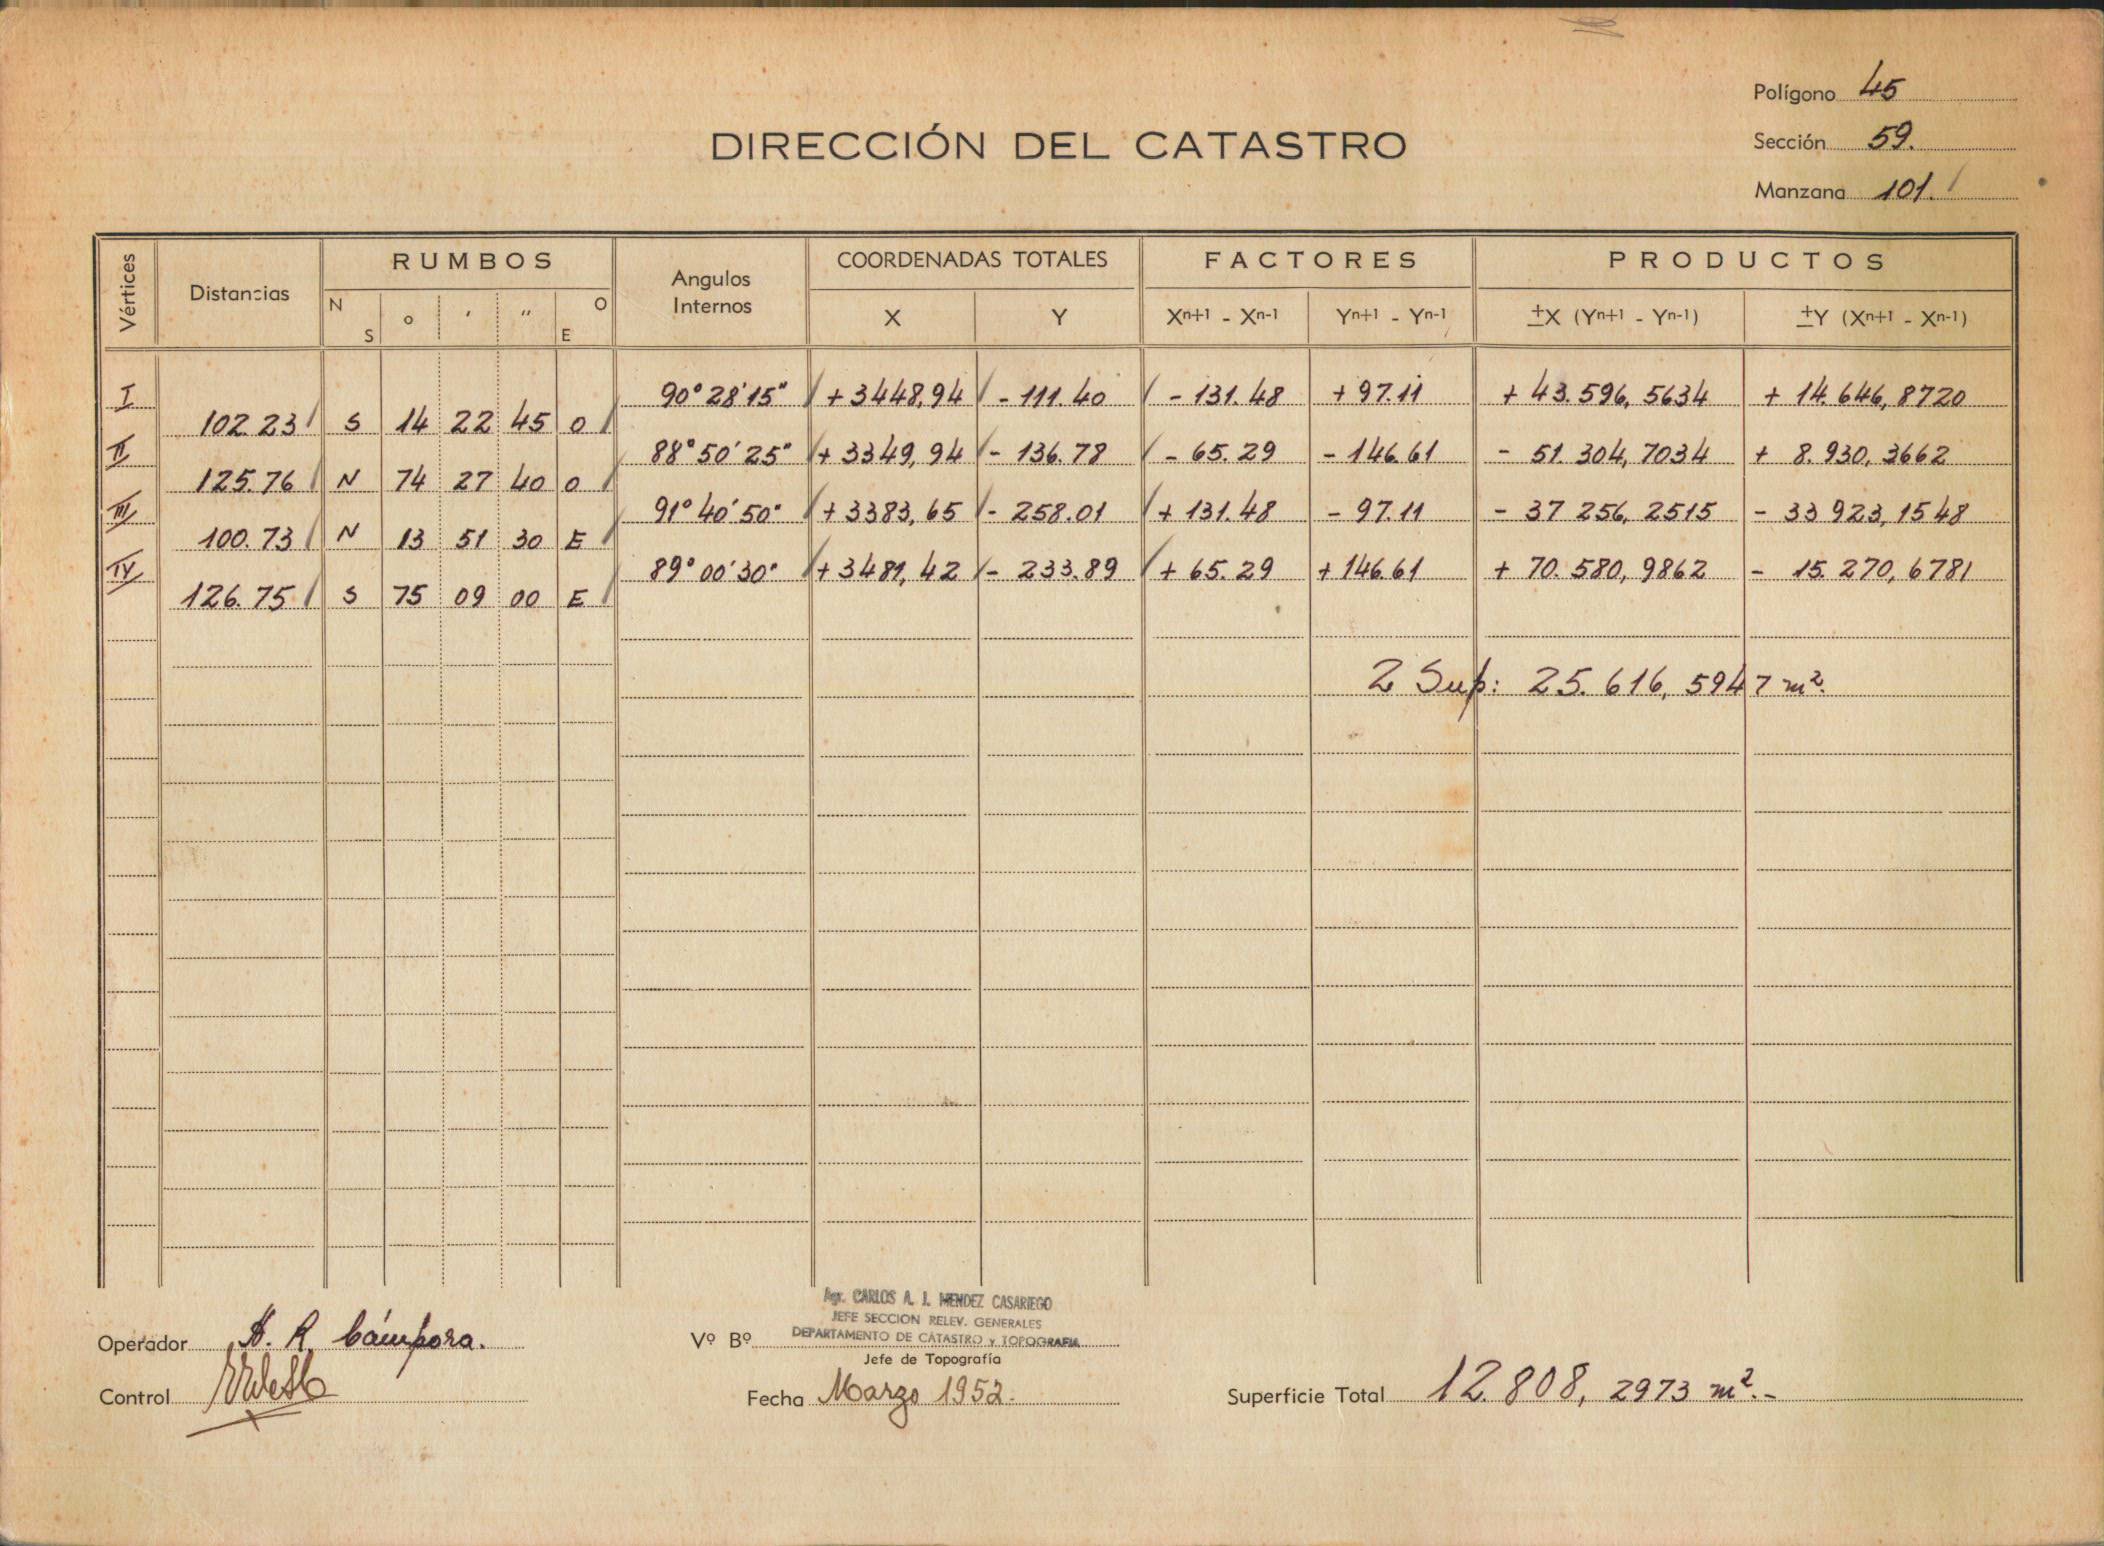 Polígono 45
DIRECCIÓN DEL CATASTRO
Sección 59.
Manzana 101.
Vértices Distancias RUMBOS Angulos Internos COORDENADAS TOTALES FACTORES PRODUCTOS
N S ° ′ ″ O E X Y Xn+1 - Xn-1 Yn+1 - Yn-1 ±X (Yn+1 - Yn-1) ±Y (Xn+1 - Xn-1)
I 90° 28' 15" + 3448,94 - 111.40 - 131.48 + 97.11 + 43.596,5634 + 14.646,8720
102.23 S 14 22 45 O
II 88° 50' 25" + 3349,94 - 136.78 - 65.29 - 146.61 - 51.304,7034 + 8.930,3662
125.76 N 74 27 40 O
III 91° 40' 50" + 3383,65 - 258.01 + 131.48 - 97.11 - 37 256,2515 - 33 923,1548
100.73 N 13 51 30 E
IV 89° 00' 30" + 3481,42 - 233.89 + 65.29 + 146.61 + 70.580,9862 - 15.270,6781
126.75 S 75 09 00 E
2 Sup: 25.616,5947 m².
Agr. CARLOS A. J. MENDEZ CASARIEGO
JEFE SECCION RELEV. GENERALES
DEPARTAMENTO DE CATASTRO y TOPOGRAFIA
Operador A. R. Cámpora. Vº Bº
Jefe de Topografía
Control Fecha Marzo 1952.- Superficie Total 12.808,2973 m².-